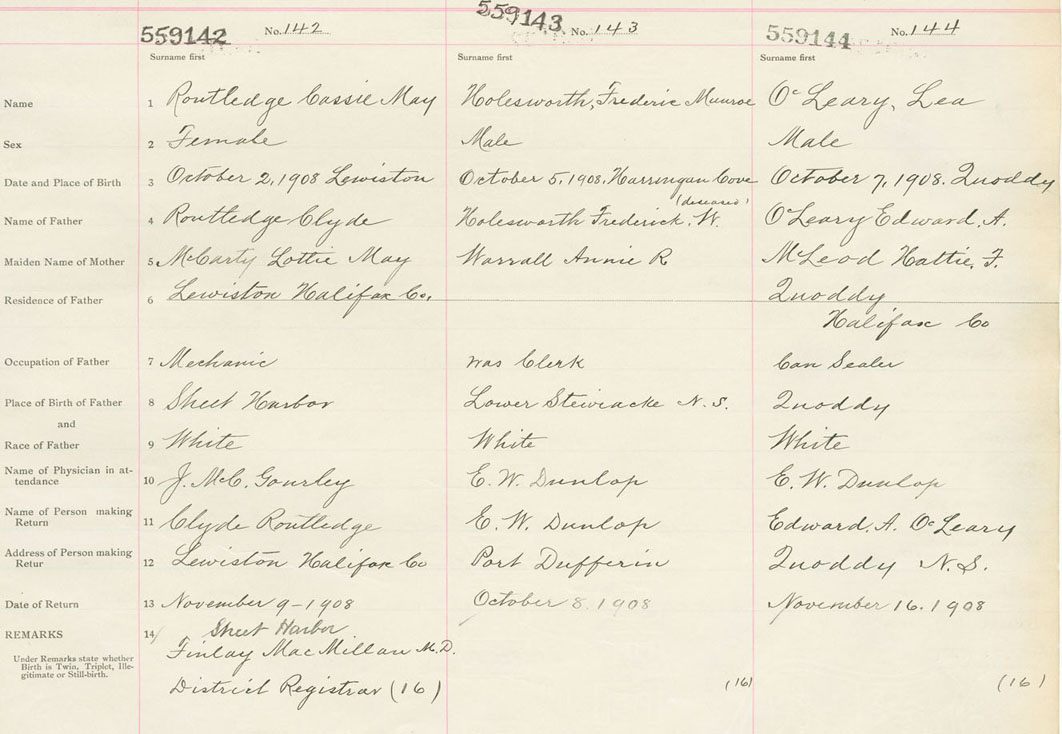 559142 No. 142 559143 No. 143 559144 No. 144
Surname first Surname first Surname first
Name 1 Routledge Cassie May Holesworth, Frederic Munroe O'Leary, Lea
Sex 2 Female Male Male
Date and Place of Birth 3 October 2, 1908 Lewiston October 5, 1908, Harringan Cove October 7, 1908. Quoddy
(deceased)
Name of Father 4 Routledge Clyde Holesworth Frederick. W. O'Leary Edward. A.
Maiden Name of Mother 5 McCarty Lottie May Warrall Annie R McLeod Hattie. F.
Residence of Father 6 Lewiston Halifax Co. Quoddy
Halifax Co
Occupation of Father 7 Mechanic was Clerk Can Sealer
Place of Birth of Father 8 Sheet Harbor Lower Stewiacke N. S. Quoddy
and
Race of Father 9 White White White
Name of Physician in at-
tendance 10 J. McC. Gourley E. W. Dunlop E. W. Dunlop
Name of Person making
Return 11 Clyde Routledge E. W. Dunlop Edward. A. O'Leary
Address of Person making
Retur 12 Lewiston Halifax Co Port Dufferin Quoddy N.S.
Date of Return 13 November 9-1908 October 8. 1908 November 16. 1908
REMARKS 14 Sheet Harbor
Finlay MacMillan M.D.
Under Remarks state whether
Birth is Twin, Triplet, Ille-
gitimate or Still-birth.
District Registrar (16) (16) (16)